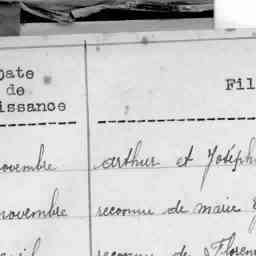 Date
de
issance
Fil
ovembre
arthur et Joséph
novembre
reconnu de marie
reconnu de Floren